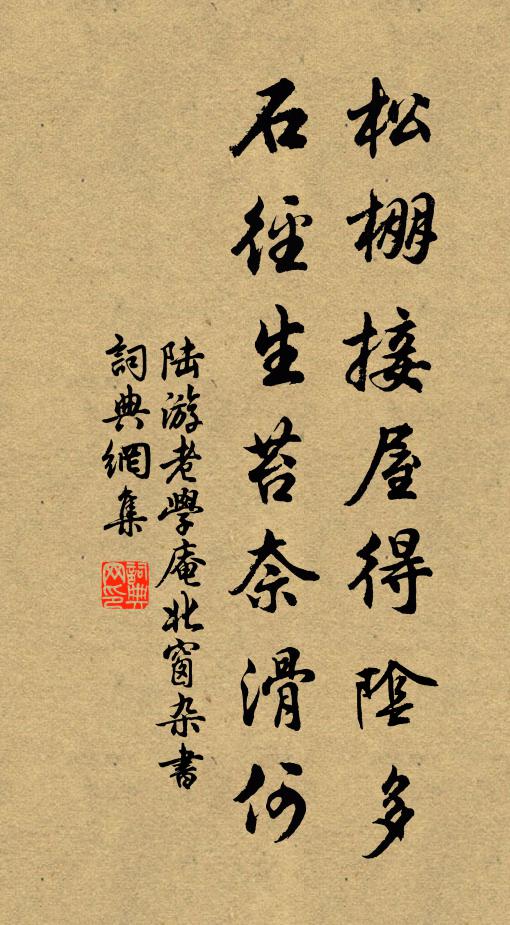 松棚接屋得陰多
石徑生苔奈滑何
陸游老學庵北窗杂書
詞典網集
詞典網印